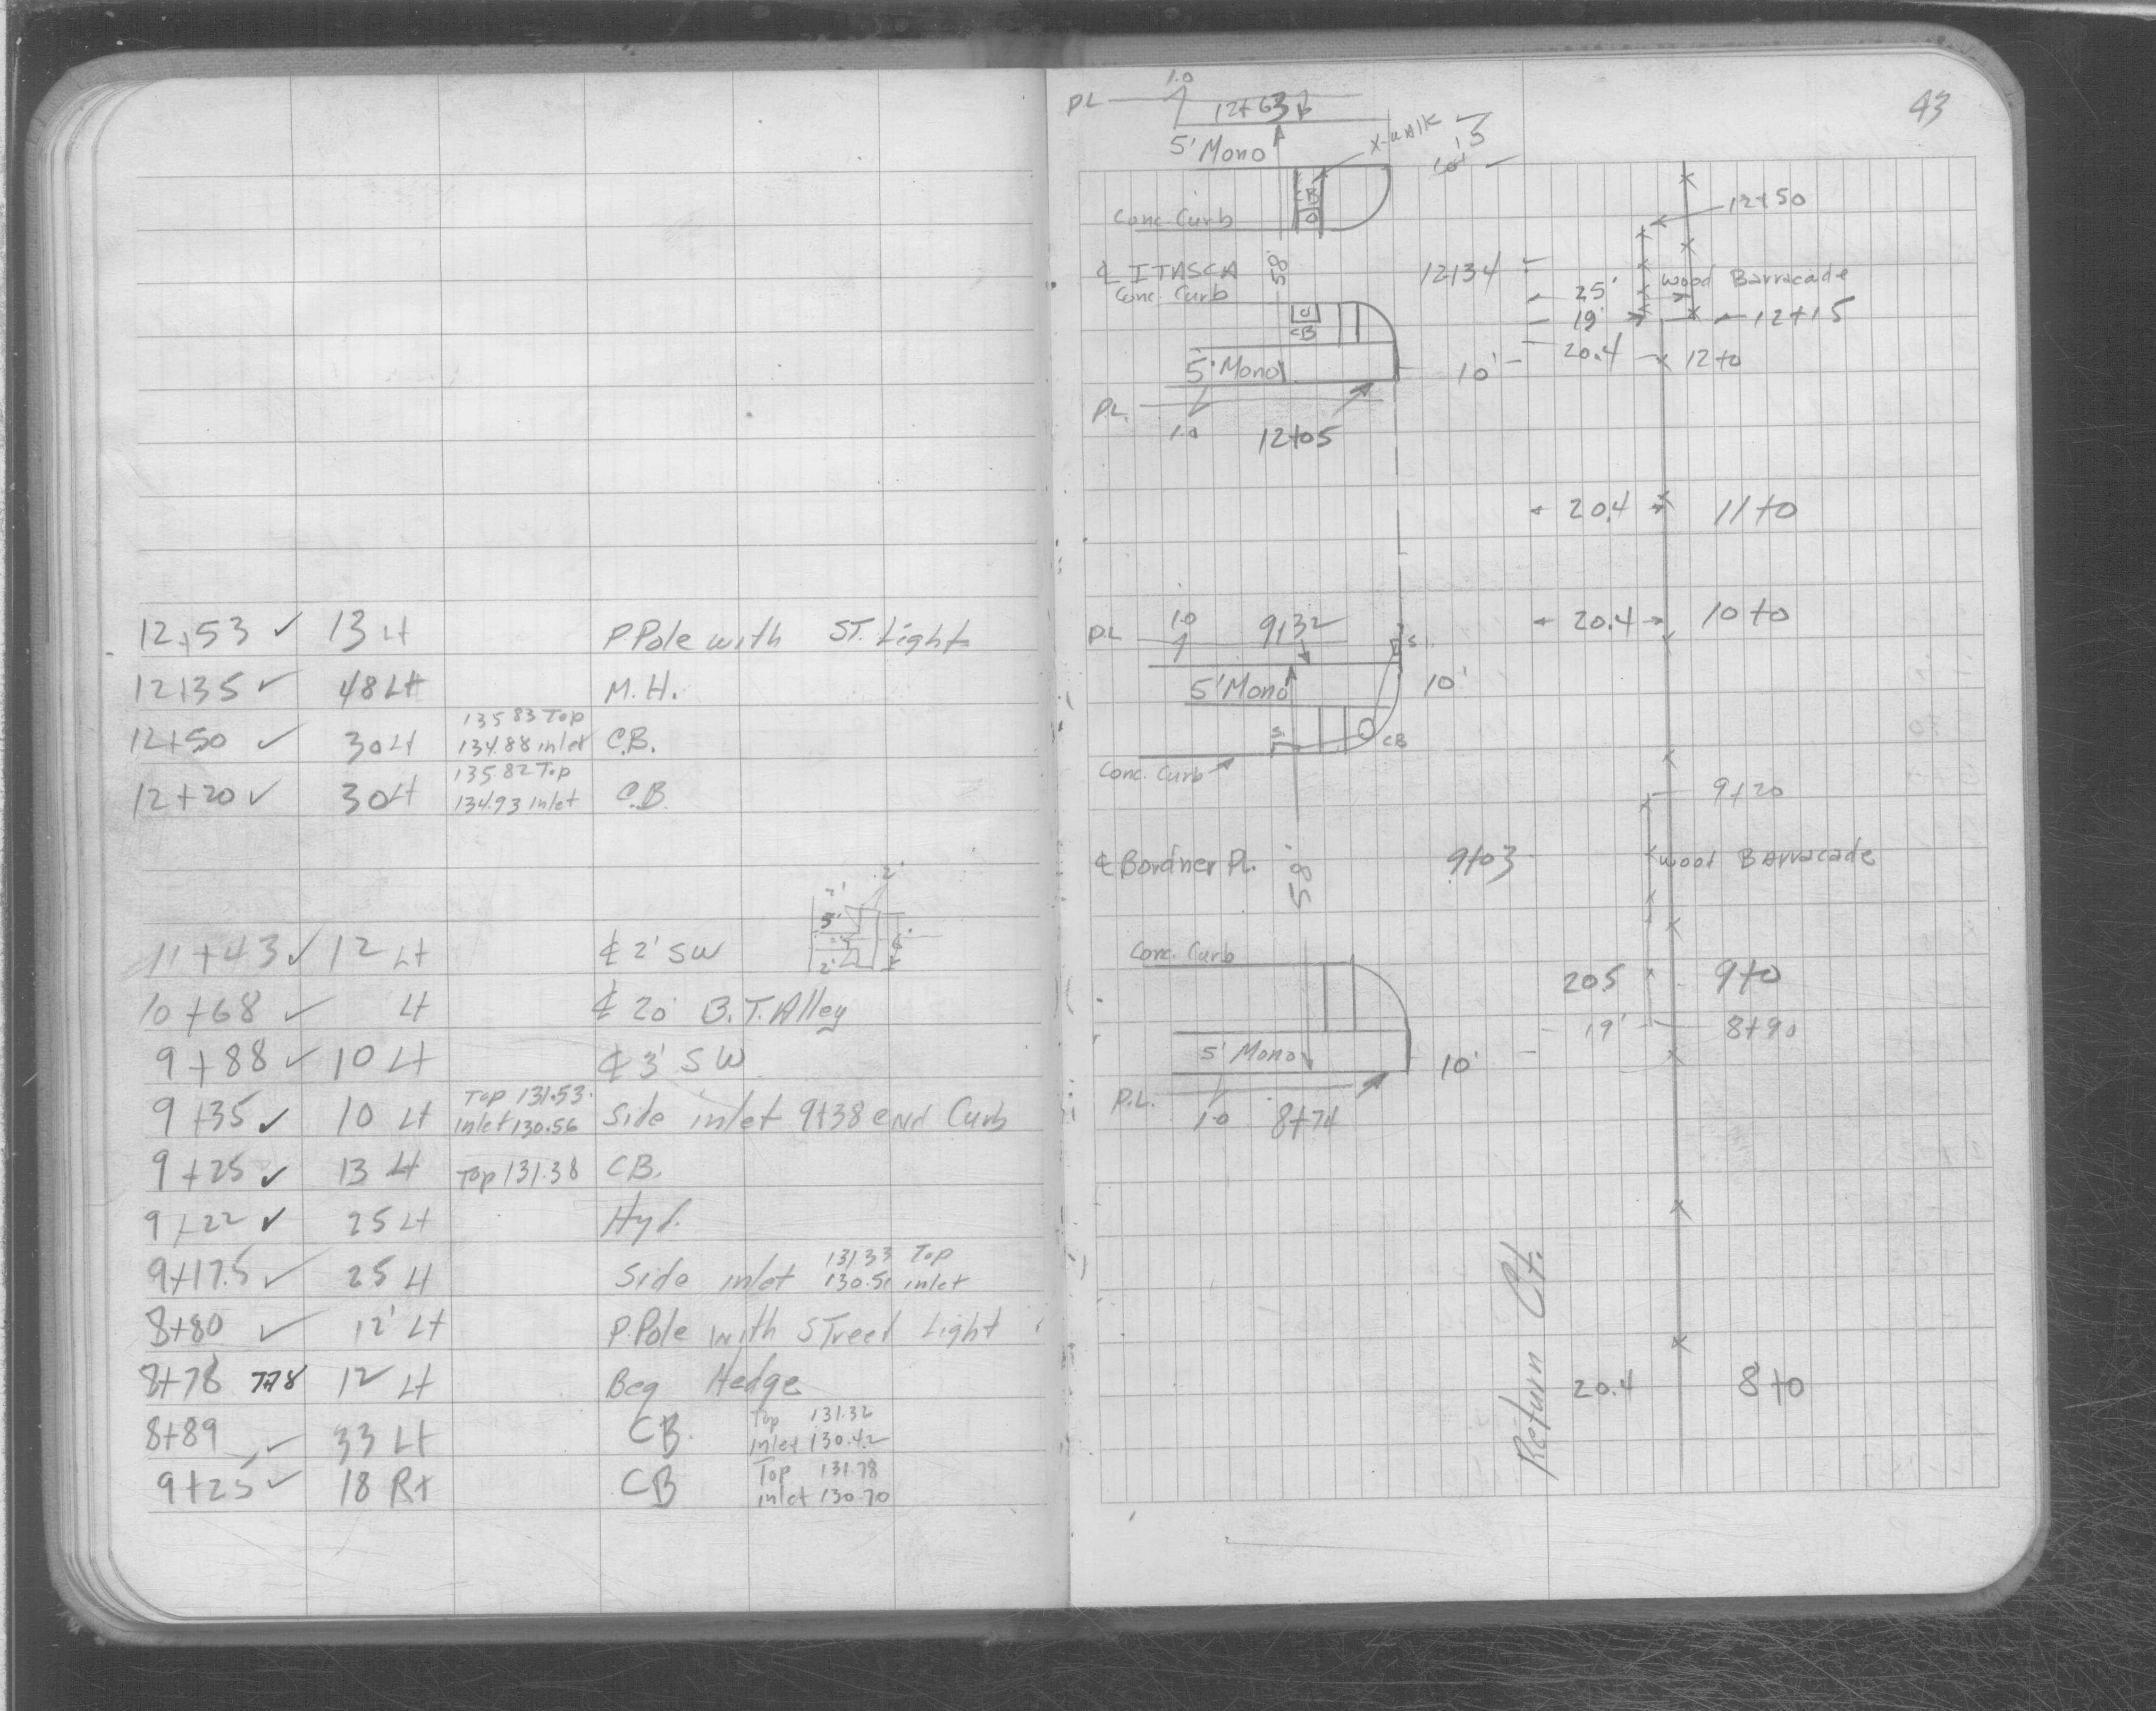 12+53 ✓ 13 Lt P.Pole with ST. Light
12+35 ✓ 48 Lt M.H.
135.83 Top
12+50 ✓ 30 Lt 134.88 inlet C.B.
135.82 Top
12+20 ✓ 30 Lt 134.93 inlet C.B.
2'
2'
5'
2'
11+43 ✓ 12 Lt ℄ 2' SW
10+68 ✓ Lt ℄ 20' B.T. Alley
9+88 ✓ 10 Lt ℄ 3' SW
Top 131.53
9+35 ✓ 10 Lt Inlet 130.56 Side inlet 9+38 end Curb
9+25 ✓ 13 Lt Top 131.38 C.B.
9+22 ✓ 25 Lt Hyd.
131.33 Top
9+17.5 ✓ 25 Lt Side inlet 130.51 inlet
8+80 ✓ 12' Lt P.Pole with STreet Light
8+78 7+78 12 Lt Beg Hedge
Top 131.32
8+89 ✓ 33 Lt CB. inlet 130.42
Top 131.78
9+25 ✓ 18 Rt CB inlet 130.70
43
1.0
P.L. 12+63
5' Mono X-WALK 15
10'
CB
Conc. Curb
12+50
℄ ITASCA 58' 12+34
Conc. Curb
25' Wood Barracade
CB
19' 12+15
20.4 12+0
5' Mono 10'
P.L.
1.0 12+05
20.4 11+0
20.4 10+0
1.0 9+32
P.L.
5' Mono 10'
CB
Conc. Curb
9+20
℄ Bordner Pl. 58' 9+03 Wood Barracade
Conc. Curb
20.5 9+0
19' 8+90
5' Mono 10'
P.L.
1.0 8+74
Return Ct.
20.4 8+0